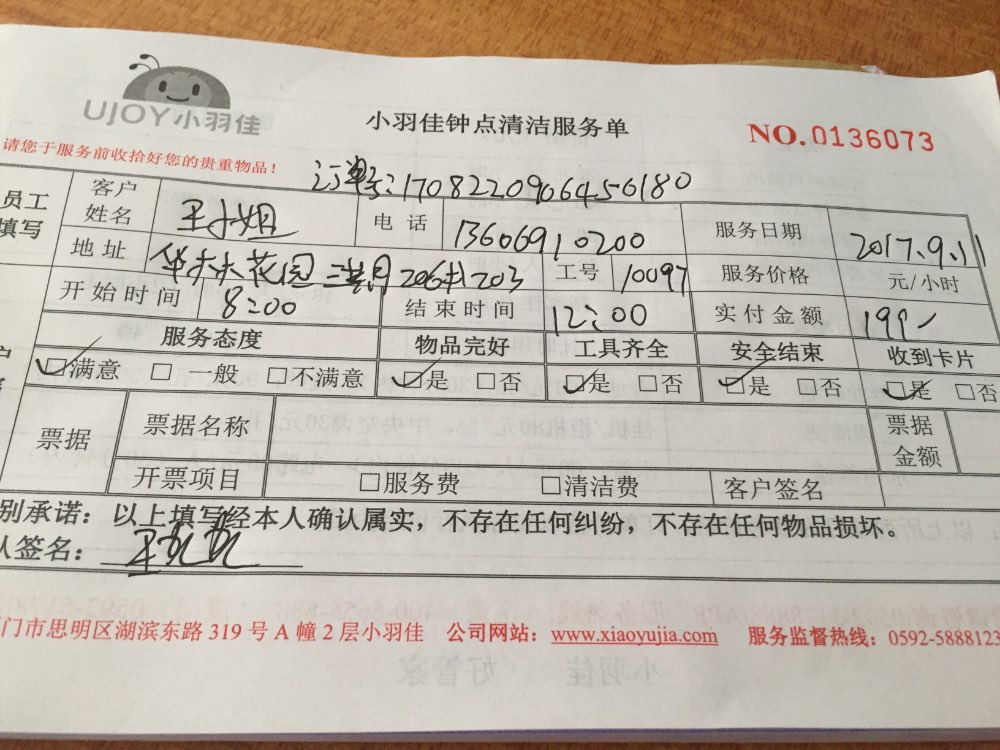 UJOY小羽佳
小羽佳钟点清洁服务单
NO.0136073
请您于服务前收拾好您的贵重物品!
订单号:1708222090645 0180
员工填写 客户姓名 王小姐 电话 13606910200 服务日期 2017.9.11
地址 华林花园三期206林703 工号 10097 服务价格 元/小时
开始时间 8:00 结束时间 12:00 实付金额 199
服务态度 物品完好 工具齐全 安全结束 收到卡片
☑满意 □一般 □不满意 ☑是 □否 ☑是 □否 ☑是 □否 ☑是 □否
票据 票据名称 票据金额
开票项目 □服务费 □清洁费 客户签名
别承诺:以上填写经本人确认属实,不存在任何纠纷,不存在任何物品损坏。
人签名:
门市思明区湖滨东路 319 号 A 幢 2 层小羽佳 公司网站:www.xiaoyujia.com 服务监督热线:0592-5888123
小羽佳 好管家